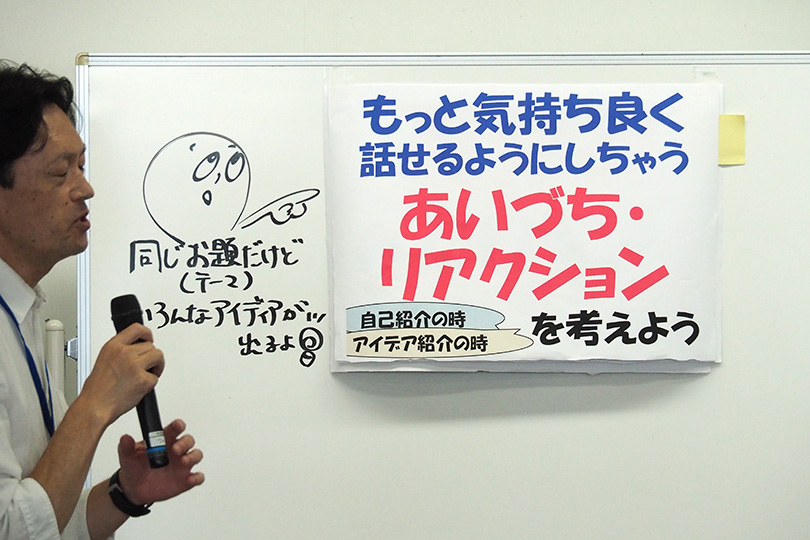 同じお題だけど
(テーマ)
いろんなアイディアが
出るよ
もっと気持ち良く
話せるようにしちゃう
あいづち・
リアクション
自己紹介の時
アイデア紹介の時
を考えよう